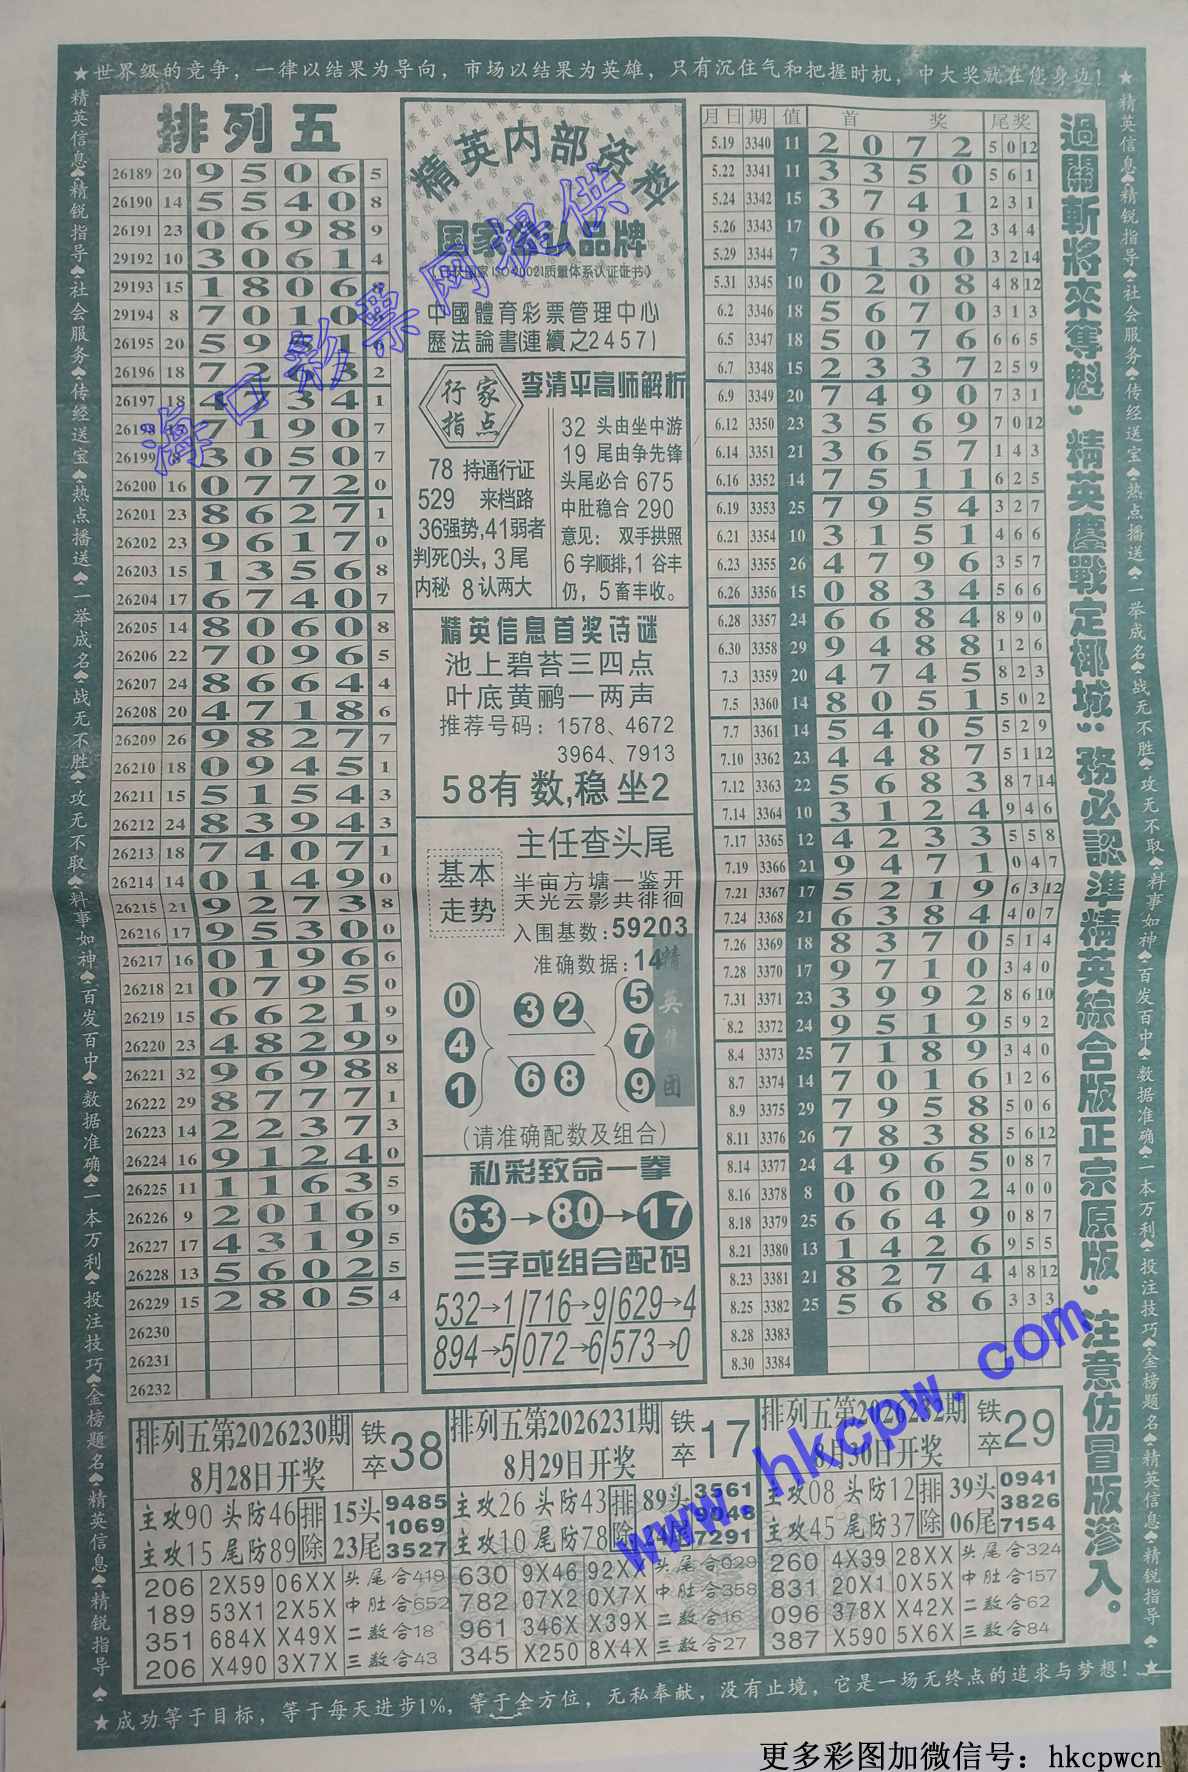 ★世界级的竞争，一律以结果为导向，市场以结果为英雄，只有沉住气和把握时机，中大奖就在您身边！★
精英信息♠精锐指导♠社会服务♠传经送宝♠热点播送♠一举成名♠战无不胜♠攻无不取♠料事如神♠百发百中♠数据准确♠一本万利♠投注技巧♠金榜题名♠精英信息♠精锐指导♠
排列五
26189 20 9 5 0 6 5
26190 14 5 5 4 0 8
26191 23 0 6 9 8 9
29192 10 3 0 6 1 4
29193 15 1 8 0 6
29194 8 7 0 1 0
26195 20 5 9 5 1
26196 18 7 2 3 2
26197 18 4 7 3 4 1
26198 7 1 9 0 7
26199 3 0 5 0 7
26200 16 0 7 7 2 0
26201 23 8 6 2 7 1
26202 23 9 6 1 7 0
26203 15 1 3 5 6 8
26204 17 6 7 4 0 7
26205 14 8 0 6 0 8
26206 22 7 0 9 6 5
26207 24 8 6 6 4 4
26208 20 4 7 1 8 6
26209 26 9 8 2 7 7
26210 18 0 9 4 5 1
26211 15 5 1 5 4 3
26212 24 8 3 9 4 3
26213 18 7 4 0 7 1
26214 14 0 1 4 9 0
26215 21 9 2 7 3 8
26216 17 9 5 3 0 0
26217 16 0 1 9 6 6
26218 21 0 7 9 5 0
26219 15 6 6 2 1 9
26220 23 4 8 2 9 9
26221 32 9 6 9 8 8
26222 29 8 7 7 7 1
26223 14 2 2 3 7 3
26224 16 9 1 2 4 0
26225 11 1 1 6 3 5
26226 9 2 0 1 6 9
26227 17 4 3 1 9 5
26228 13 5 6 0 2 5
26229 15 2 8 0 5 4
26230
26231
26232
精英内部资料
国家认品牌
中國體育彩票管理中心
歷法論書(連續之2457)
行家指点
78 持通行证
529 来档路
36强势,41弱者
判死0头,3尾
内秘 8认两大
李清平高师解析
32 头由坐中游
19 尾由争先锋
头尾必合 675
中肚稳合 290
意见：双手拱照
6字顺排,1谷丰
仍，5畜丰收。
精英信息首奖诗谜
池上碧苔三四点
叶底黄鹂一两声
推荐号码：1578、4672
3964、7913
58有数,稳坐2
基本走势
主任查头尾
半亩方塘一鉴开
天光云影共徘徊
入围基数:59203
准确数据:14
0 4 1
3 2
6 8
5 7 9
(请准确配数及组合)
私彩致命一拳
63→80→17
三字或组合配码
532→1/716→9/629→4
894→5/072→6/573→0
月日 期 值 首奖 尾奖
5.19 3340 11 2 0 7 2 5 0 12
5.22 3341 11 3 3 5 0 5 6 1
5.24 3342 15 3 7 4 1 2 3 1
5.26 3343 17 0 6 9 2 3 4 4
5.29 3344 7 3 1 3 0 3 2 14
5.31 3345 10 0 2 0 8 4 8 12
6.2 3346 18 5 6 7 0 3 1 3
6.5 3347 18 5 0 7 6 6 6 5
6.7 3348 15 2 3 3 7 2 5 9
6.9 3349 20 7 4 9 0 7 3 1
6.12 3350 23 3 5 6 9 7 0 12
6.14 3351 21 3 6 5 7 1 4 3
6.16 3352 14 7 5 1 1 6 2 5
6.19 3353 25 7 9 5 4 3 2 7
6.21 3354 10 3 1 5 1 4 6 6
6.23 3355 26 4 7 9 6 3 5 7
6.26 3356 15 0 8 3 4 5 6 6
6.28 3357 24 6 6 8 4 8 9 0
6.30 3358 29 9 4 8 8 1 2 6
7.3 3359 20 4 7 4 5 8 2 3
7.5 3360 14 8 0 5 1 5 0 2
7.7 3361 14 5 4 0 5 5 2 9
7.10 3362 23 4 4 8 7 5 1 12
7.12 3363 22 5 6 8 3 8 7 14
7.14 3364 10 3 1 2 4 9 4 6
7.17 3365 12 4 2 3 3 5 5 8
7.19 3366 21 9 4 7 1 0 4 7
7.21 3367 17 5 2 1 9 6 3 12
7.24 3368 21 6 3 8 4 4 0 7
7.26 3369 18 8 3 7 0 5 1 4
7.28 3370 17 9 7 1 0 3 4 0
7.31 3371 23 3 9 9 2 8 6 10
8.2 3372 24 9 5 1 9 5 9 2
8.4 3373 25 7 1 8 9 3 4 0
8.7 3374 14 7 0 1 6 1 2 6
8.9 3375 29 7 9 5 8 5 0 6
8.11 3376 26 7 8 3 8 5 6 12
8.14 3377 24 4 9 6 5 0 8 7
8.16 3378 8 0 6 0 2 4 0 0
8.18 3379 25 6 6 4 9 0 8 7
8.21 3380 13 1 4 2 6 9 5 5
8.23 3381 21 8 2 7 4 4 8 12
8.25 3382 25 5 6 8 6 3 3 3
8.28 3383
8.30 3384
過關斬將來奪魁，精英鏖戰定椰城；務必認準精英綜合版正宗原版，注意仿冒版滲入。
精英信息♠精锐指导♠社会服务♠传经送宝♠热点播送♠一举成名♠战无不胜♠攻无不取♠料事如神♠百发百中♠数据准确♠一本万利♠投注技巧♠金榜题名♠精英信息♠精锐指导♠
排列五第2026230期
8月28日开奖
铁卒38
主攻90 头防46
主攻15 尾防89
排除 15头 23尾
9485
1069
3527
206 2X59 06XX 头尾合419
189 53X1 2X5X 中肚合652
351 684X X49X 二数合18
206 X490 3X7X 三数合43
排列五第2026231期
8月29日开奖
铁卒17
主攻26 头防43
主攻10 尾防78
排除 89头 24尾
3561
9048
7291
630 9X46 92XX 头尾合029
782 07X2 0X7X 中肚合358
961 346X X39X 二数合16
345 X250 8X4X 三数合27
排列五第2026232期
8月30日开奖
铁卒29
主攻08 头防12
主攻45 尾防37
排除 39头 06尾
0941
3826
7154
260 4X39 28XX 头尾合324
831 20X1 0X5X 中肚合157
096 378X X42X 二数合62
387 X590 5X6X 三数合84
★成功等于目标，等于每天进步1%，等于全方位，无私奉献，没有止境，它是一场无终点的追求与梦想！★
海口彩票网提供
www.hkcpw.com
更多彩图加微信号：hkcpwcn